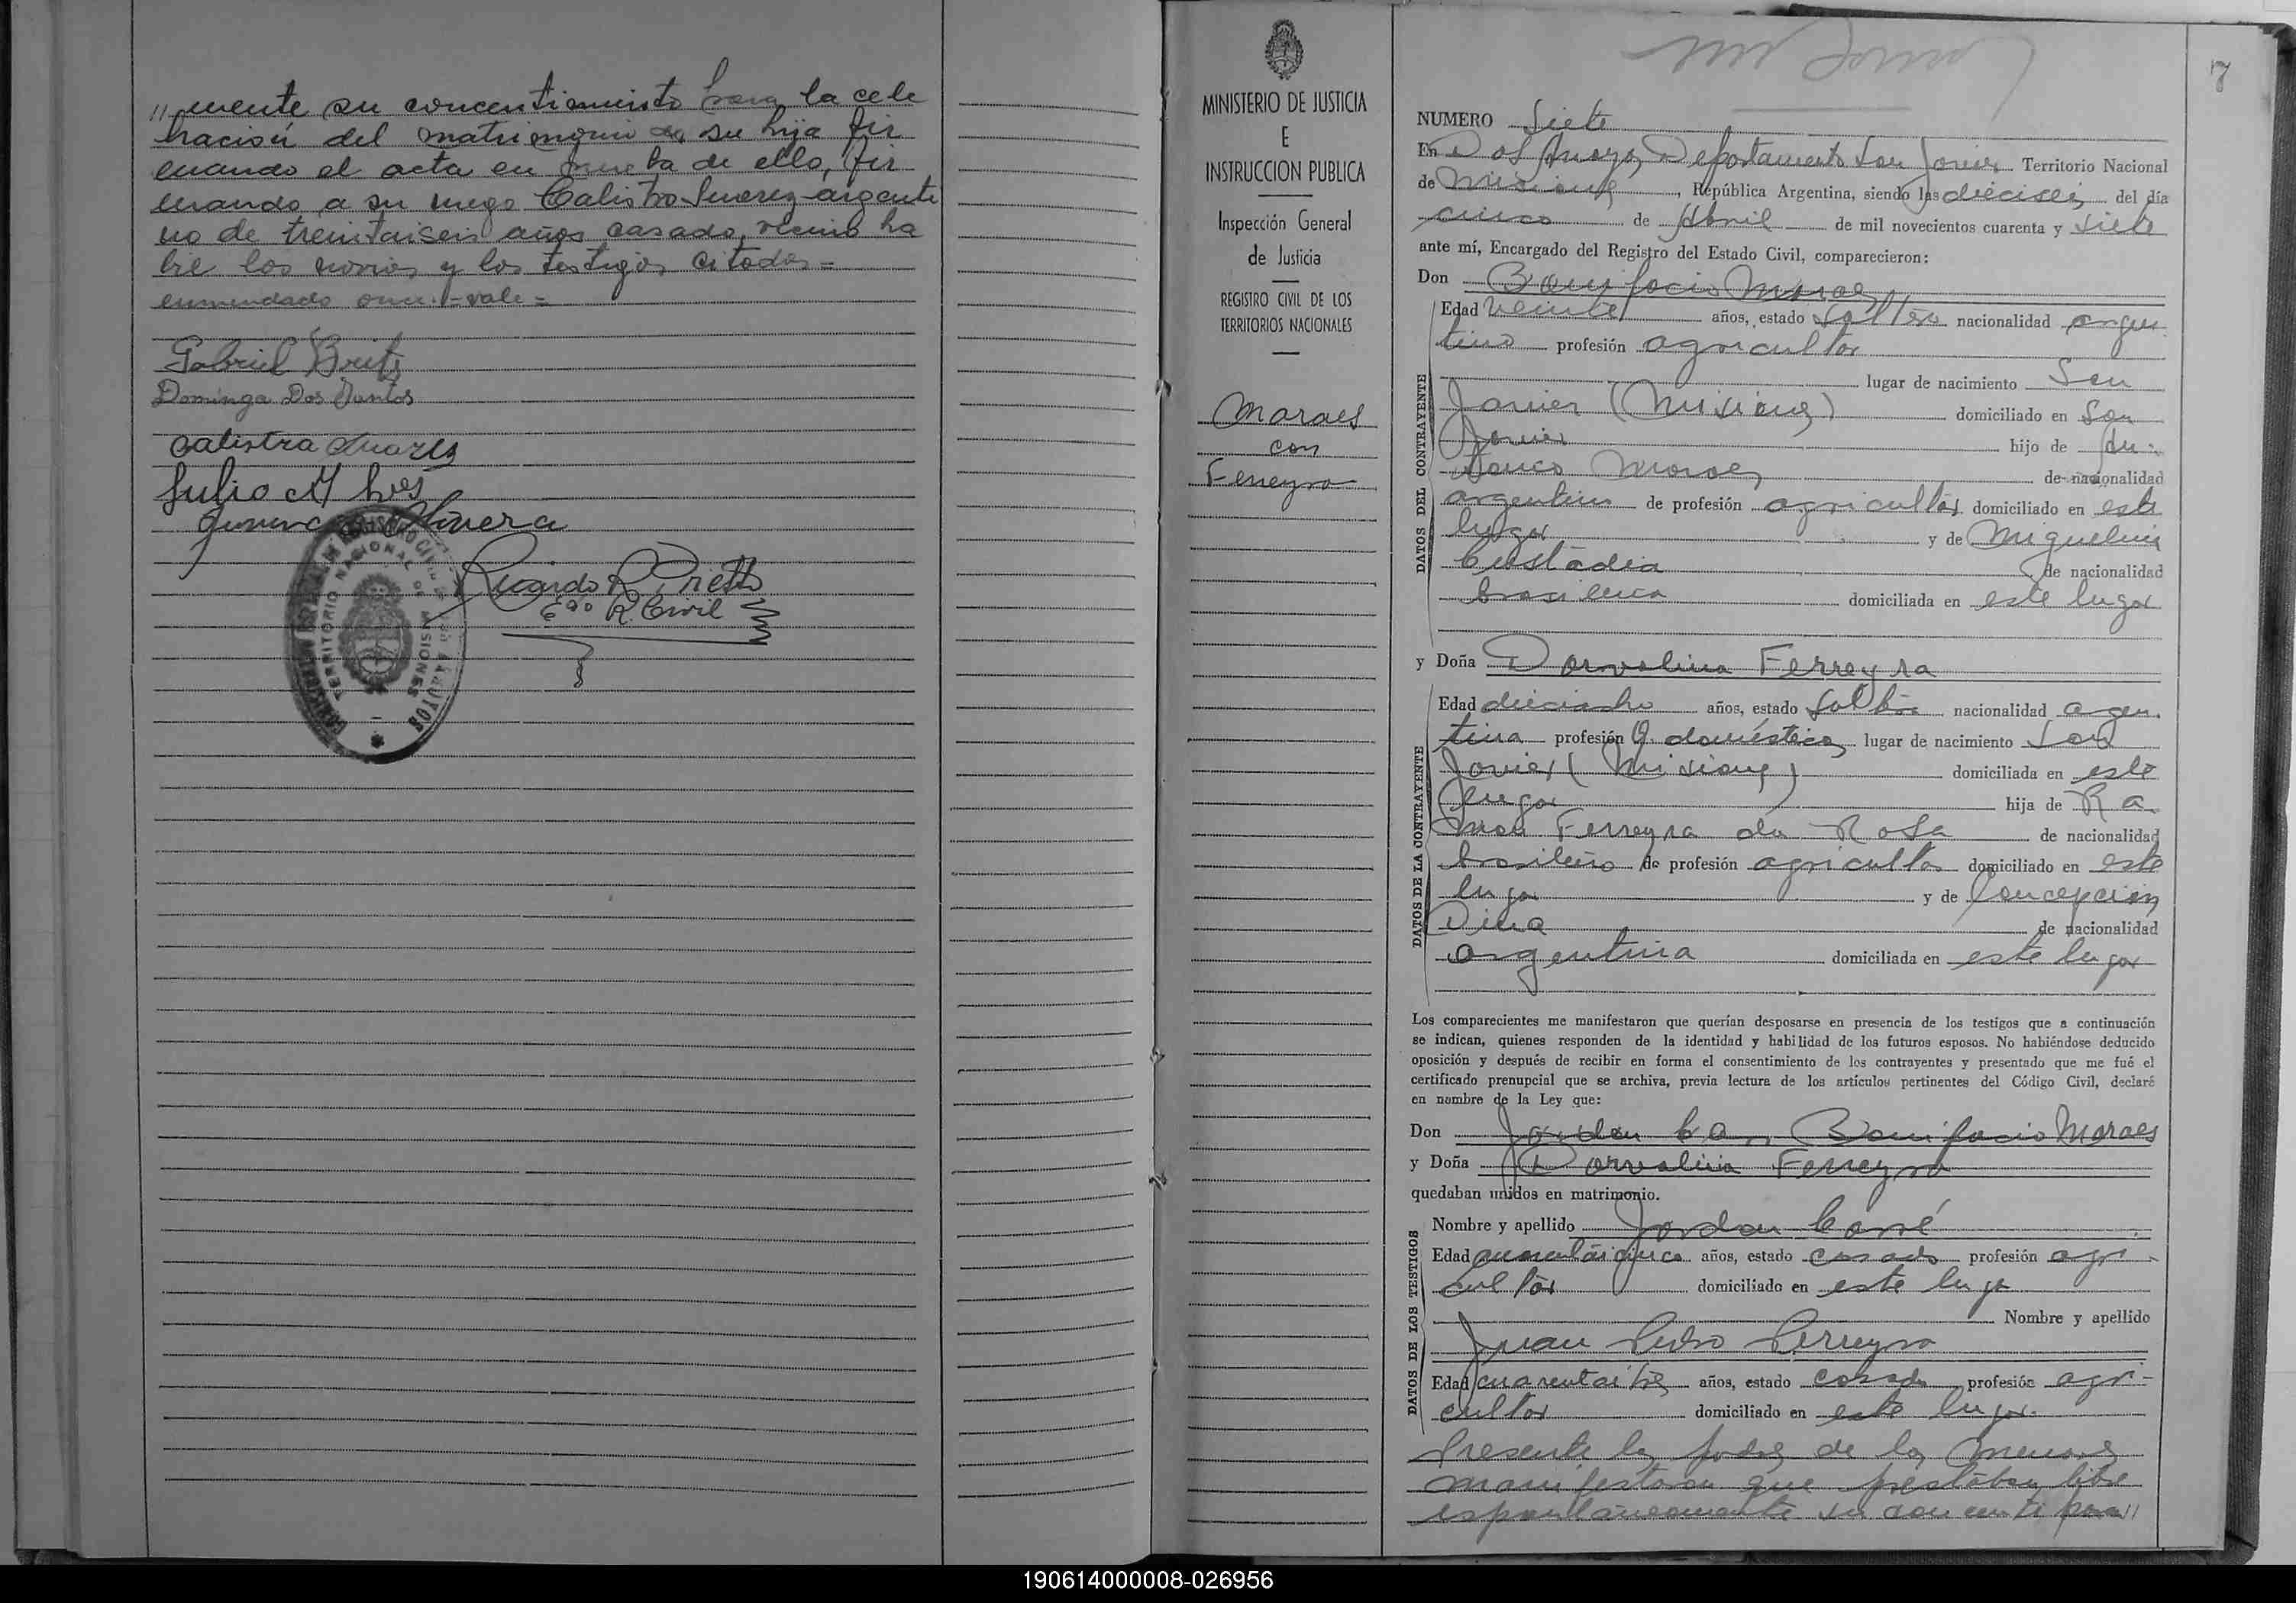 // mente su concentimiento para la cele
bración del matrimonio de su hija fir
mando el acta en prueba de ello, fir
mando a su ruego Calistro Suarez argenti
no de treintaiseis años casado, vecino ha
bil los novios y los testigos citados =
enmendado once - vale =
Gabriel Britz
Dominga Dos Santos
Calistra Suarez
Julio M Alves
Olivera
Ricardo R. Prietto
Edo R. Civil
TERRITORIO NACIONAL DE MISIONES
MINISTERIO DE JUSTICIA
E
INSTRUCCION PUBLICA
Inspección General
de Justicia
REGISTRO CIVIL DE LOS
TERRITORIOS NACIONALES
Moraes
con
Ferreyra
7
NUMERO Siete
En Dos Arroyos, Departamento San Javier Territorio Nacional
de Misiones, República Argentina, siendo las dieciseis del día
cinco de Abril de mil novecientos cuarenta y siete
ante mí, Encargado del Registro del Estado Civil, comparecieron:
Don Bonifacio Moraes
DATOS DEL CONTRAYENTE
Edad veinte años, estado soltero nacionalidad argen
tino profesión agricultor
lugar de nacimiento San
Javier (Misiones) domiciliado en San
Javier hijo de
Moraes de nacionalidad
argentino de profesión agricultor domiciliado en este
lugar y de Miguelina
Custodia de nacionalidad
brasilera domiciliada en este lugar
y Doña Dorvalina Ferreyra
DATOS DE LA CONTRAYENTE
Edad dieciocho años, estado soltera nacionalidad argen
tina profesión Q. domésticos lugar de nacimiento San
Javier (Misiones) domiciliada en este
lugar hija de Ra
mon Ferreyra da Rosa de nacionalidad
brasileño de profesión agricultor domiciliado en este
lugar y de Concepcion
Dina de nacionalidad
argentina domiciliada en este lugar
Los comparecientes me manifestaron que querían desposarse en presencia de los testigos que a continuación
se indican, quienes responden de la identidad y habilidad de los futuros esposos. No habiéndose deducido
oposición y después de recibir en forma el consentimiento de los contrayentes y presentado que me fué el
certificado prenupcial que se archiva, previa lectura de los artículos pertinentes del Código Civil, declaré
en nombre de la Ley que:
Don Jordan Ca, Bonifacio Moraes
y Doña Dorvalina Ferreyra
quedaban unidos en matrimonio.
DATOS DE LOS TESTIGOS
Nombre y apellido Jordan Carré
Edad cuarentaicinco años, estado casado profesión agri-
cultor domiciliado en este lugar
Nombre y apellido
Juan Pedro Ferreyra
Edad cuarentaitres años, estado casado profesión agri-
cultor domiciliado en este lugar.
Presente los padres de los menores
manifestaron que prestaban libre
espontáneamente su concenti para//
190614000008-026956